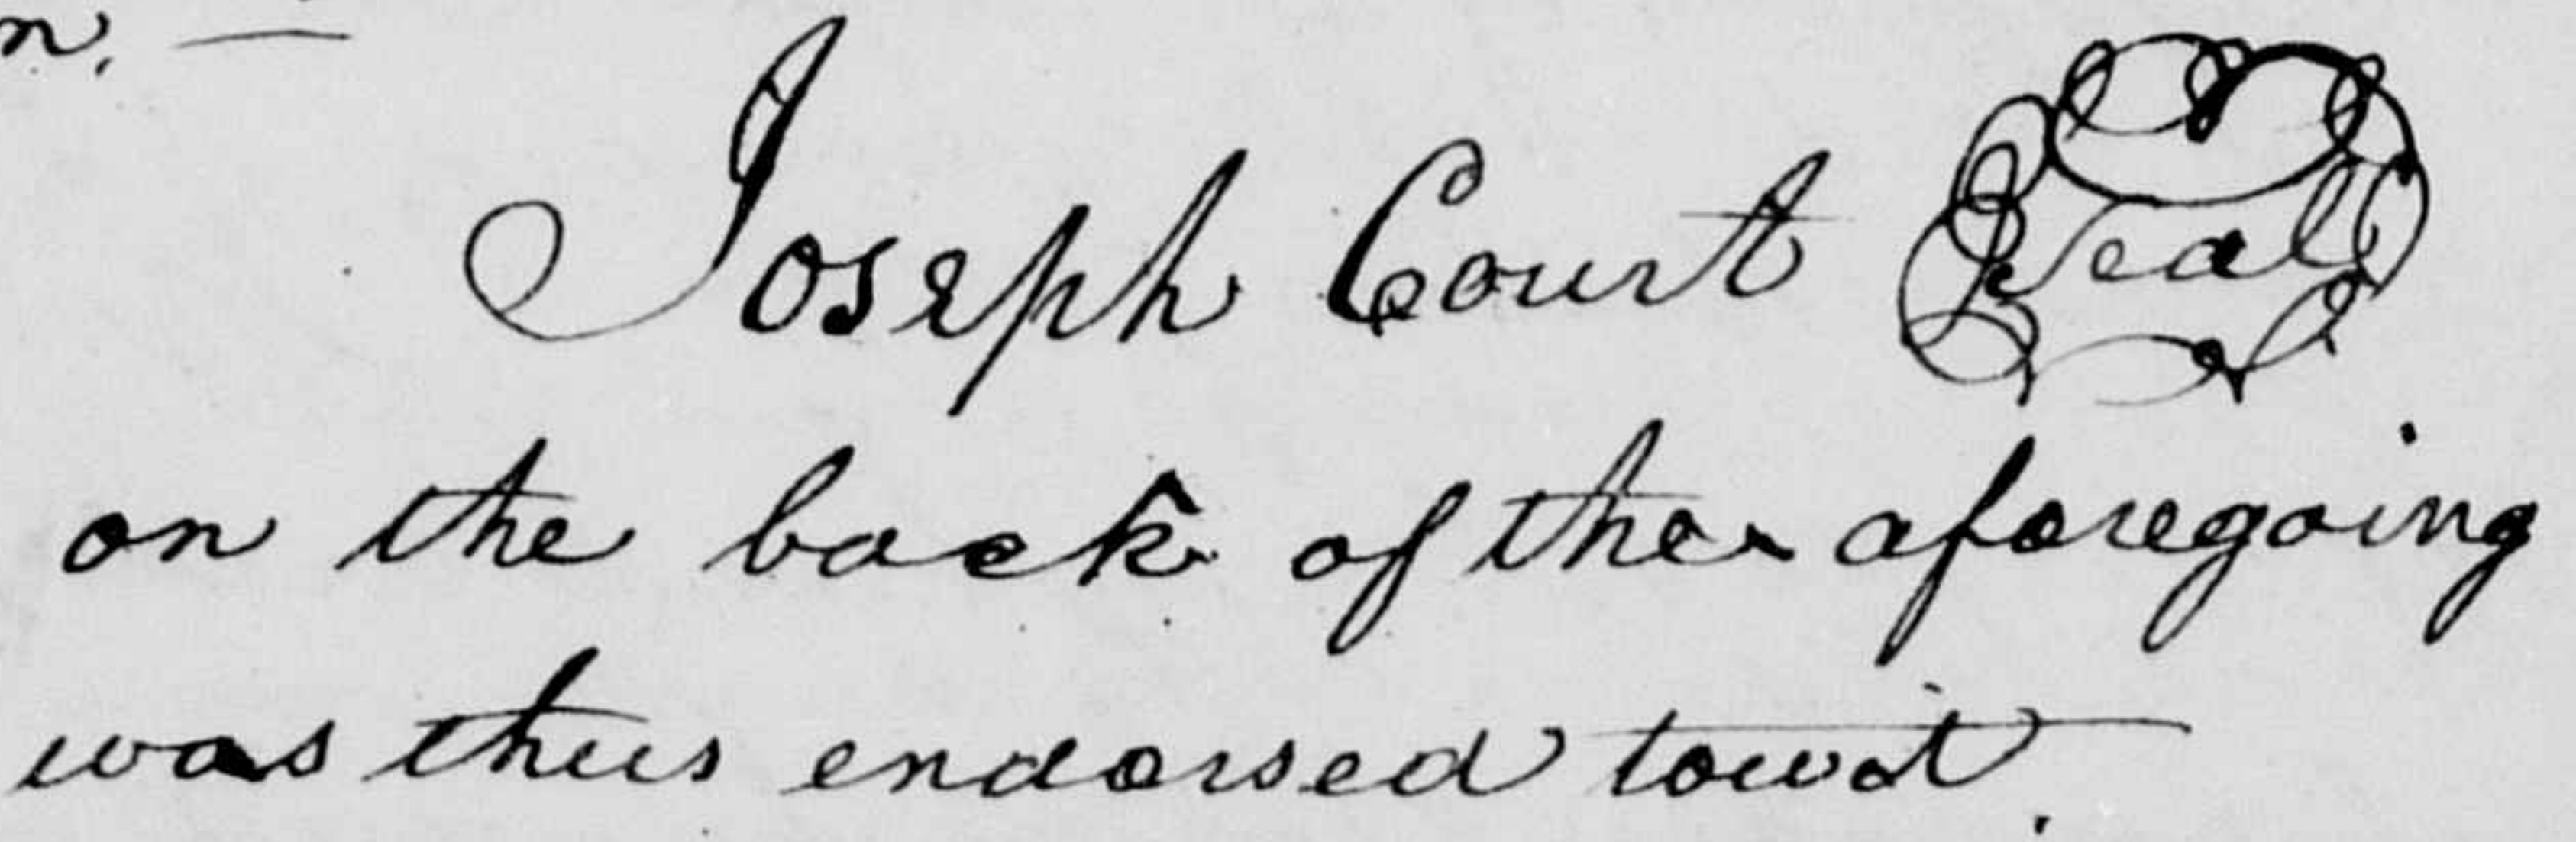 n. —
Joseph Court Seal
on the back of the aforegoing
was thus endorsed towit.